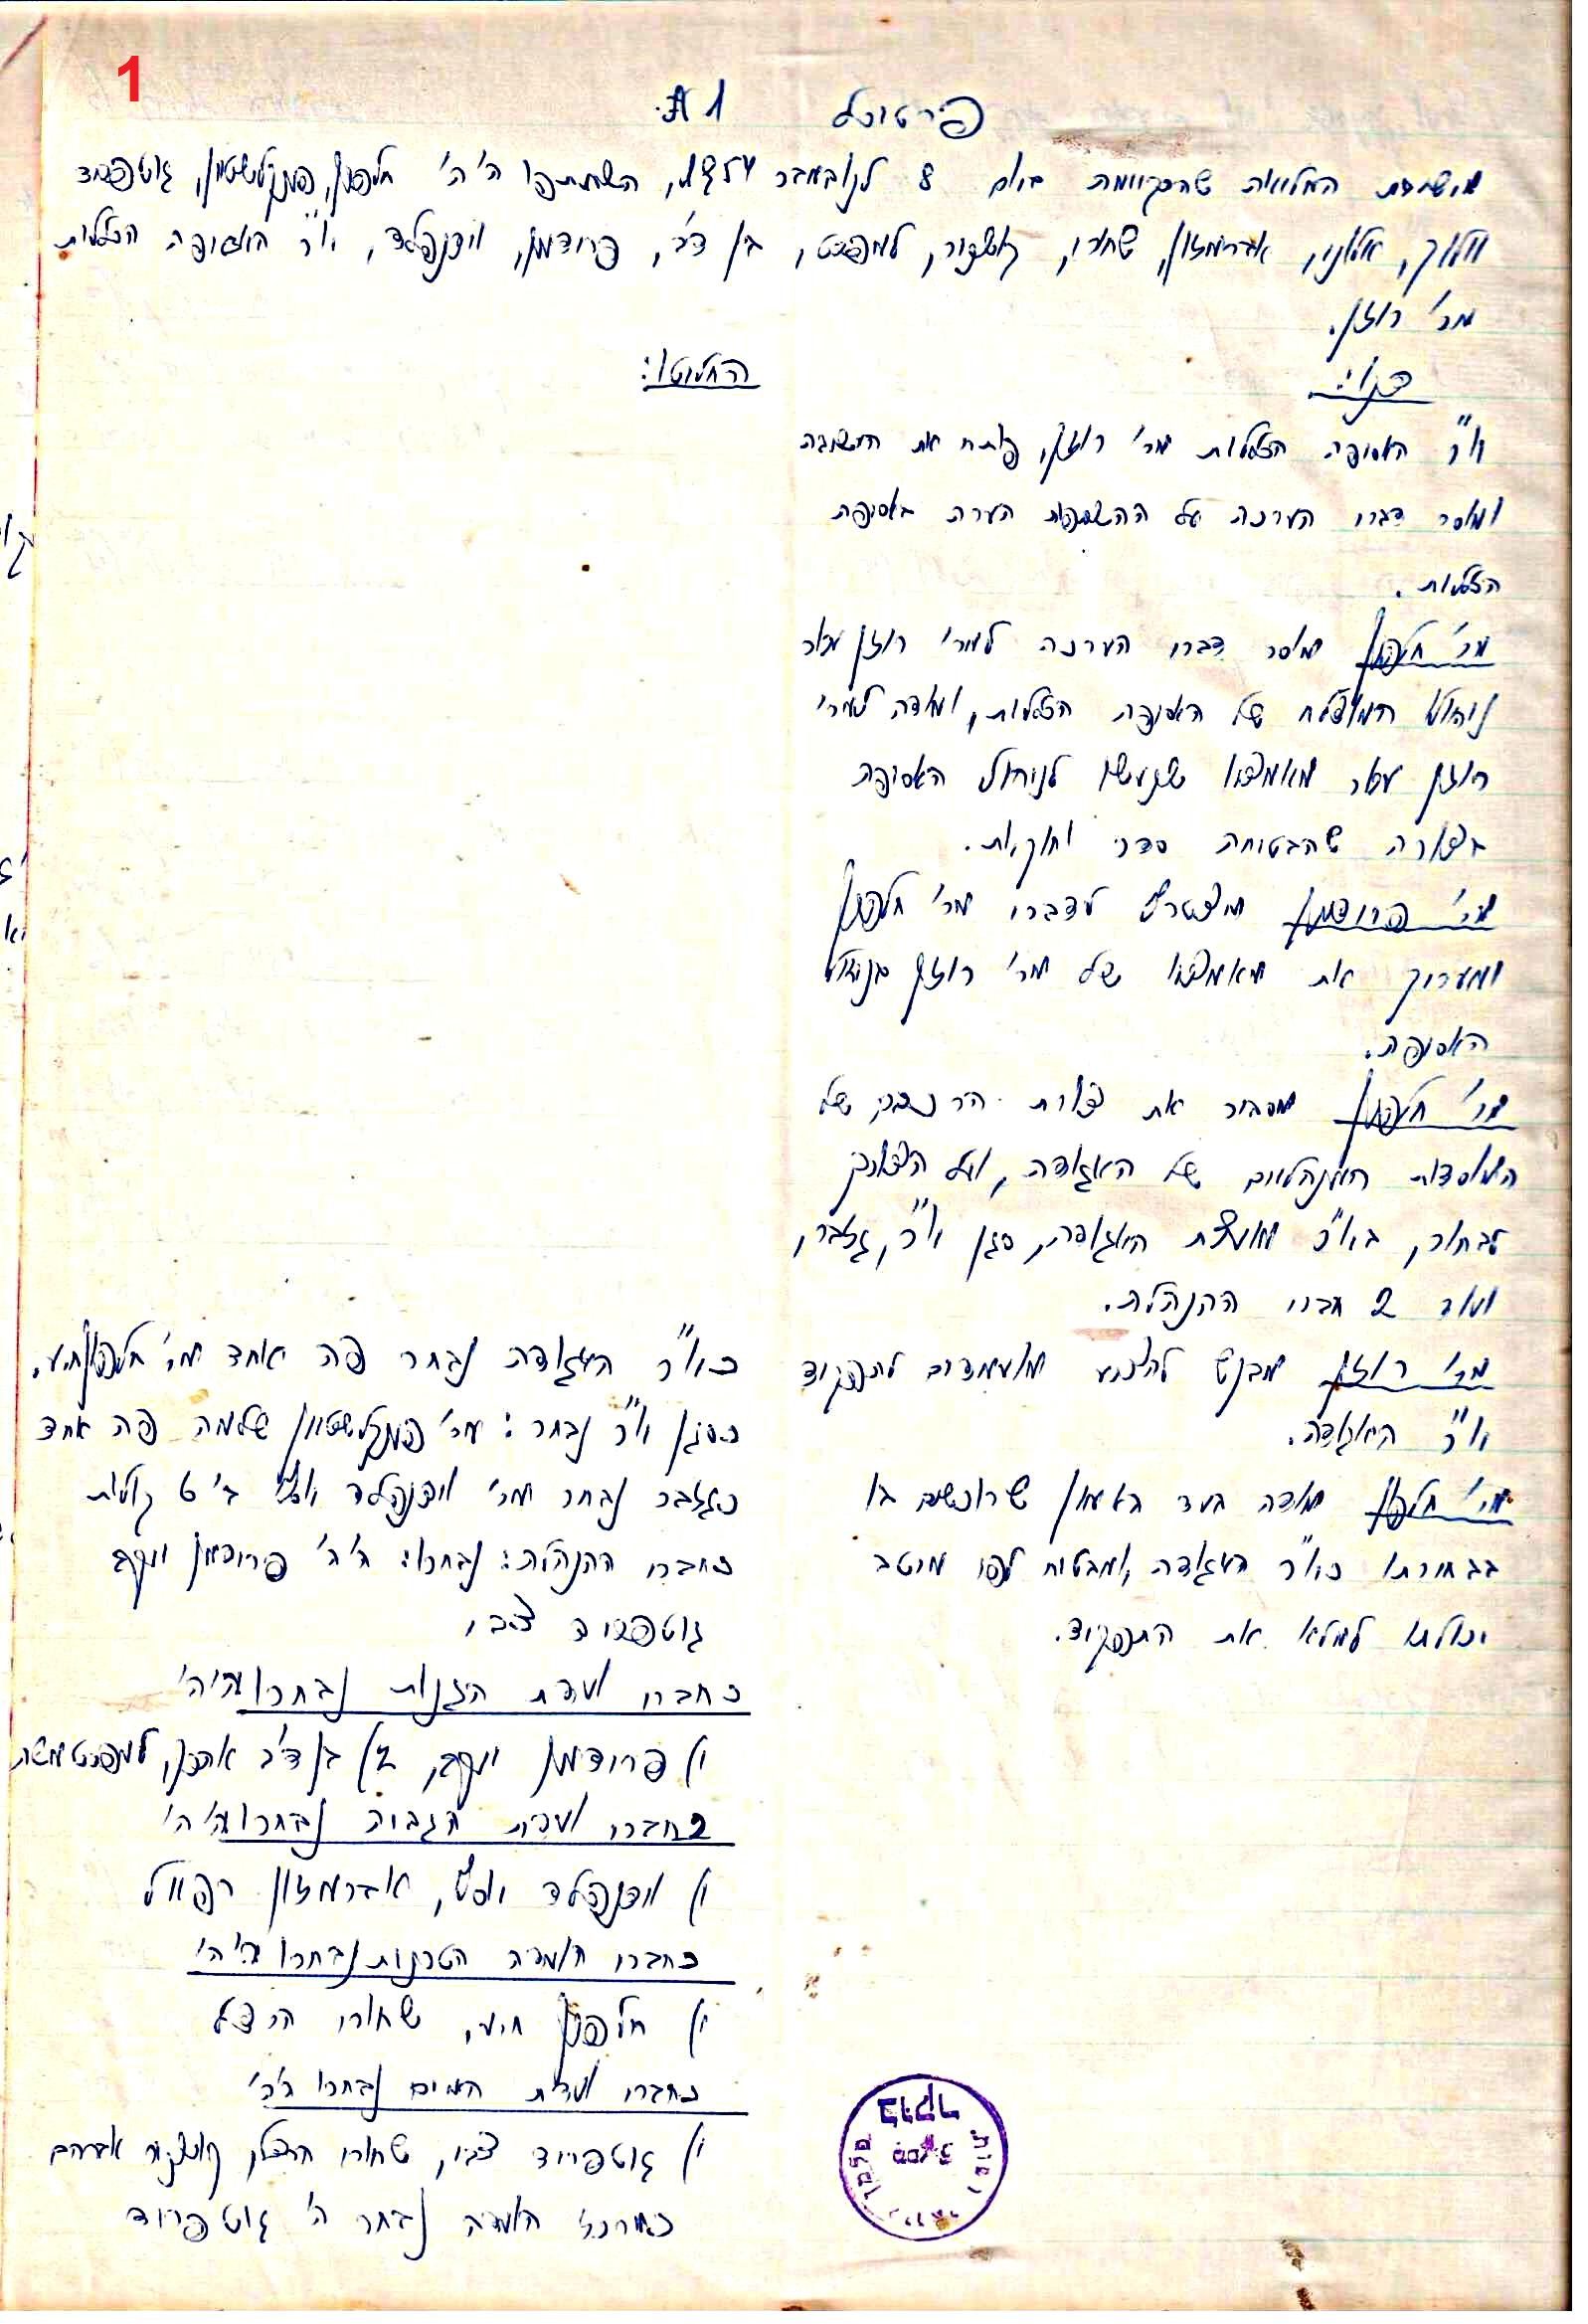 1
פרטוכל A1.
מישיבת המליאה שהתקיימה ביום 8 לנובמבר השתתפו ה'ה' חלפון, פינקלשטיין, גוטפריד
אברמזון, שחורי, בן דב, פרידמן, וינפלד, יו"ר האסיפה הכללית
מר' רוזן.
דנו:
החליטו:
יו"ר האסיפה הכללית מר' רוזן, פותח את הישיבה
ומוסר דברי הערכה על ההשתתפות הערה באסיפה
הכללית.
מר' חלפון מוסר דברי הערכה למר' רוזן עבור
ניהולו המוצלח של האסיפה הכללית, ומודה למר'
רוזן עבור מאמציו שנעשו לניהול האסיפה
בצורה שהבטיחה סדר וחוקיות.
מר' פרידמן מצטרף לדברי מר' חלפון
ומעריך את מאמציו של מר' רוזן בניהול
האסיפה.
מר' חלפון מסביר את צורת ההרכב של
המוסדות המנהליים של האגודה, ועל הצורך
לבחור, ביו"ר מועצת האגודה, סגן יו"ר, גזבר,
ועוד 2 חברי ההנהלה.
מר' רוזן מבקש להציע מועמדים לתפקיד
יו"ר האגודה.
מר' חלפון מודה בעד האמון שרוכשים בו
בבחירתו כיו"ר האגודה, ומבטיח לפי מיטב
יכולתו למלא את התפקיד.
כיו"ר האגודה נבחר פה אחד מר' חלפון חיים.
כסגן יו"ר נבחר: מר' פינקלשטיין שלמה פה אחד
כגזבר נבחר מר' וינפלד יוסף ב' 6 קולות
כחברי ההנהלה: נבחרו: ה'ה' פרידמן יעקב
גוטפריד צבי
כחברי ועדת הגנות נבחרו ה'ה'
1) פרידמן יעקב, 2) בן דב אהרן, משה
כחברי ועדת הגביה נבחרו ה'ה'
1) וינפלד יוסף, אברמזון רפאל
כחברי הועדה נבחרו ה'ה'
1) חלפון חיים, שחורי הרצל
כחברי ועדת המים נבחרו ה'ה'
1) גוטפריד צבי, שחורי הרצל, אברהם
כמרכז הועדה נבחר ה' גוטפריד